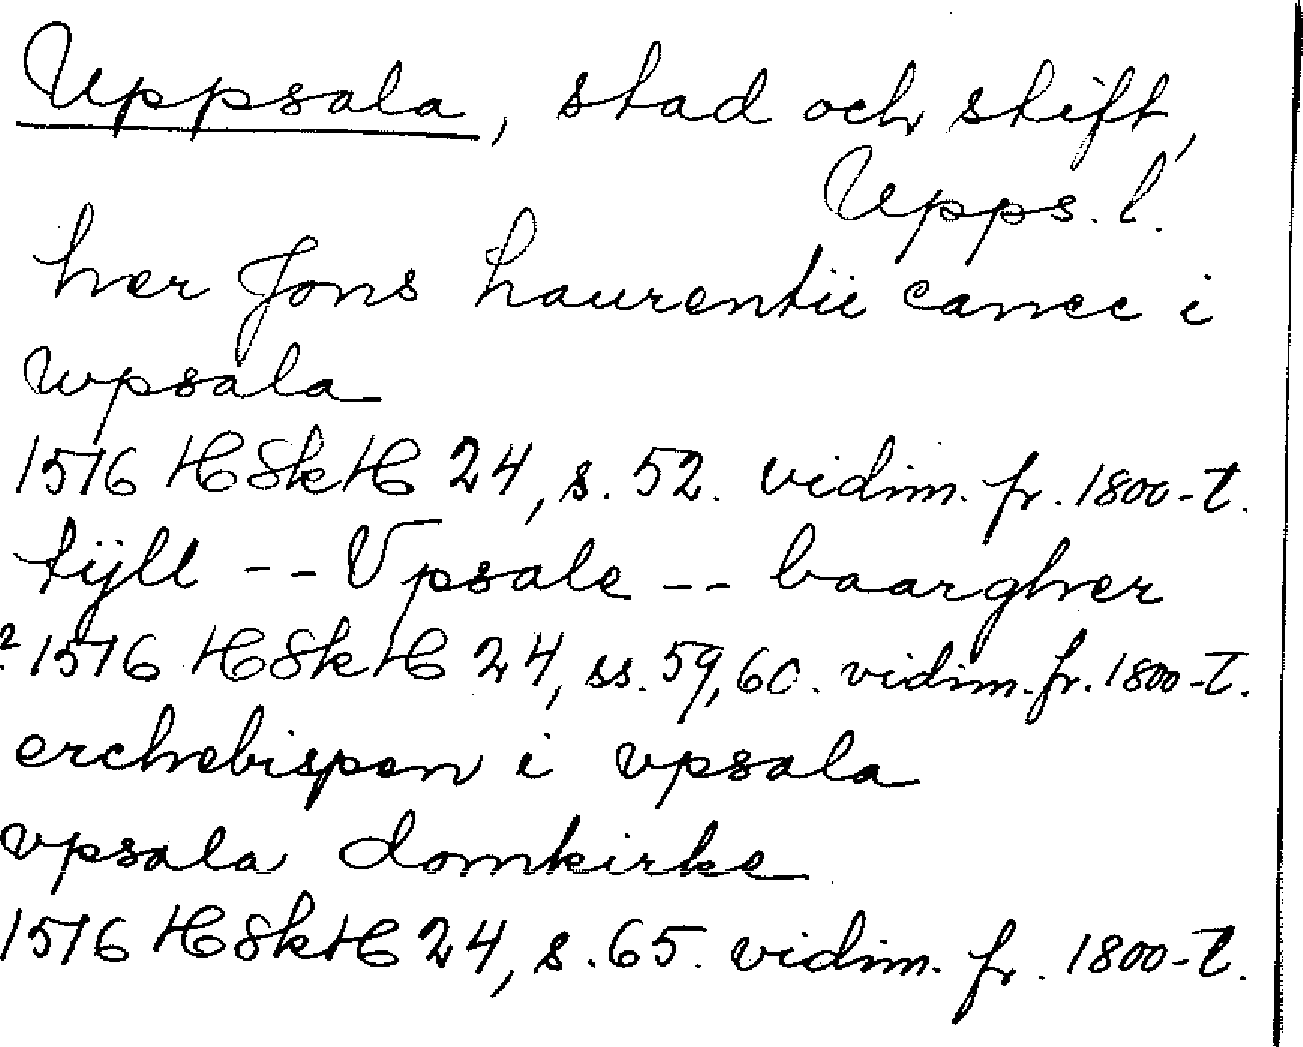 Uppsala, stad och stift,
Upps. l.
her Jons haurentii canec i
wpsala
1576 HSkH 24, s. 52. vidim. fr. 1800-t.
tijll -- Vpsale -- baargher
? 1576 HSkH 24, ss. 59, 60. vidim. fr. 1800-t.
erchebispen i vpsala
vpsala domkirke
1576 HSkH 24, s. 65. vidim. fr. 1800-t.